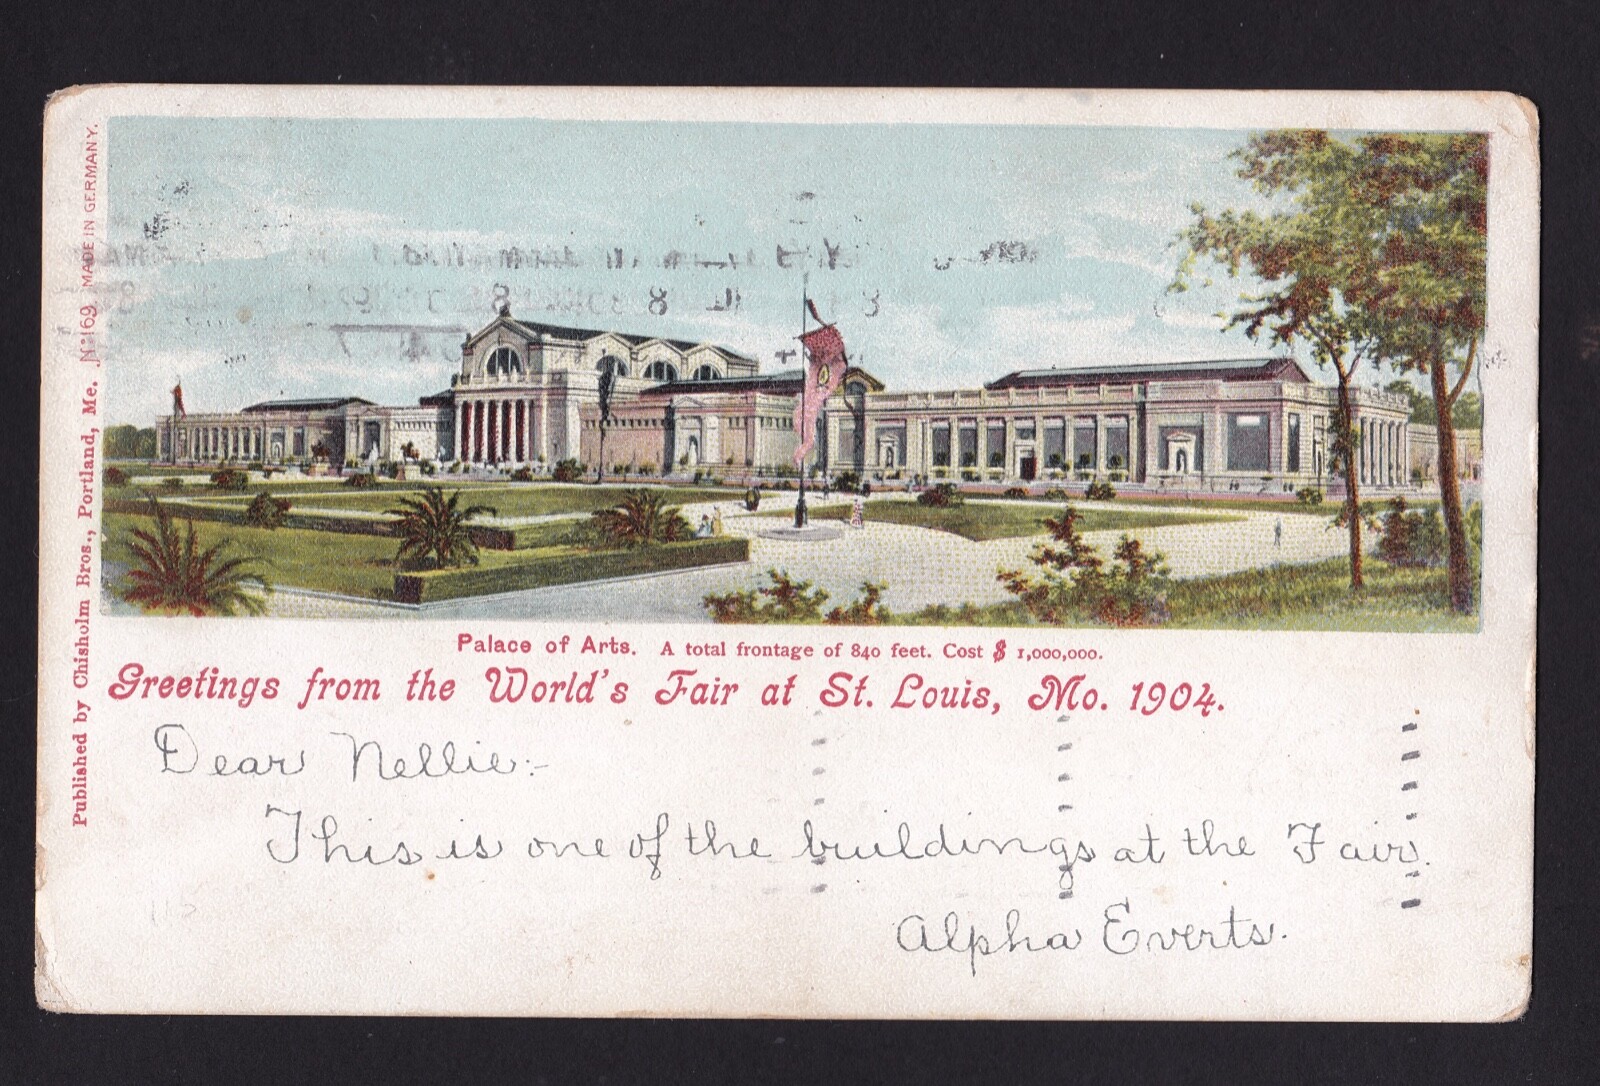 Published by Chisholm Bros., Portland, Me. No 169. MADE IN GERMANY.
Palace of Arts. A total frontage of 840 feet. Cost $ 1,000,000.
Greetings from the World's Fair at St. Louis, Mo. 1904.
Dear Nellie:-
This is one of the buildings at the Fair.
Alpha Everts.